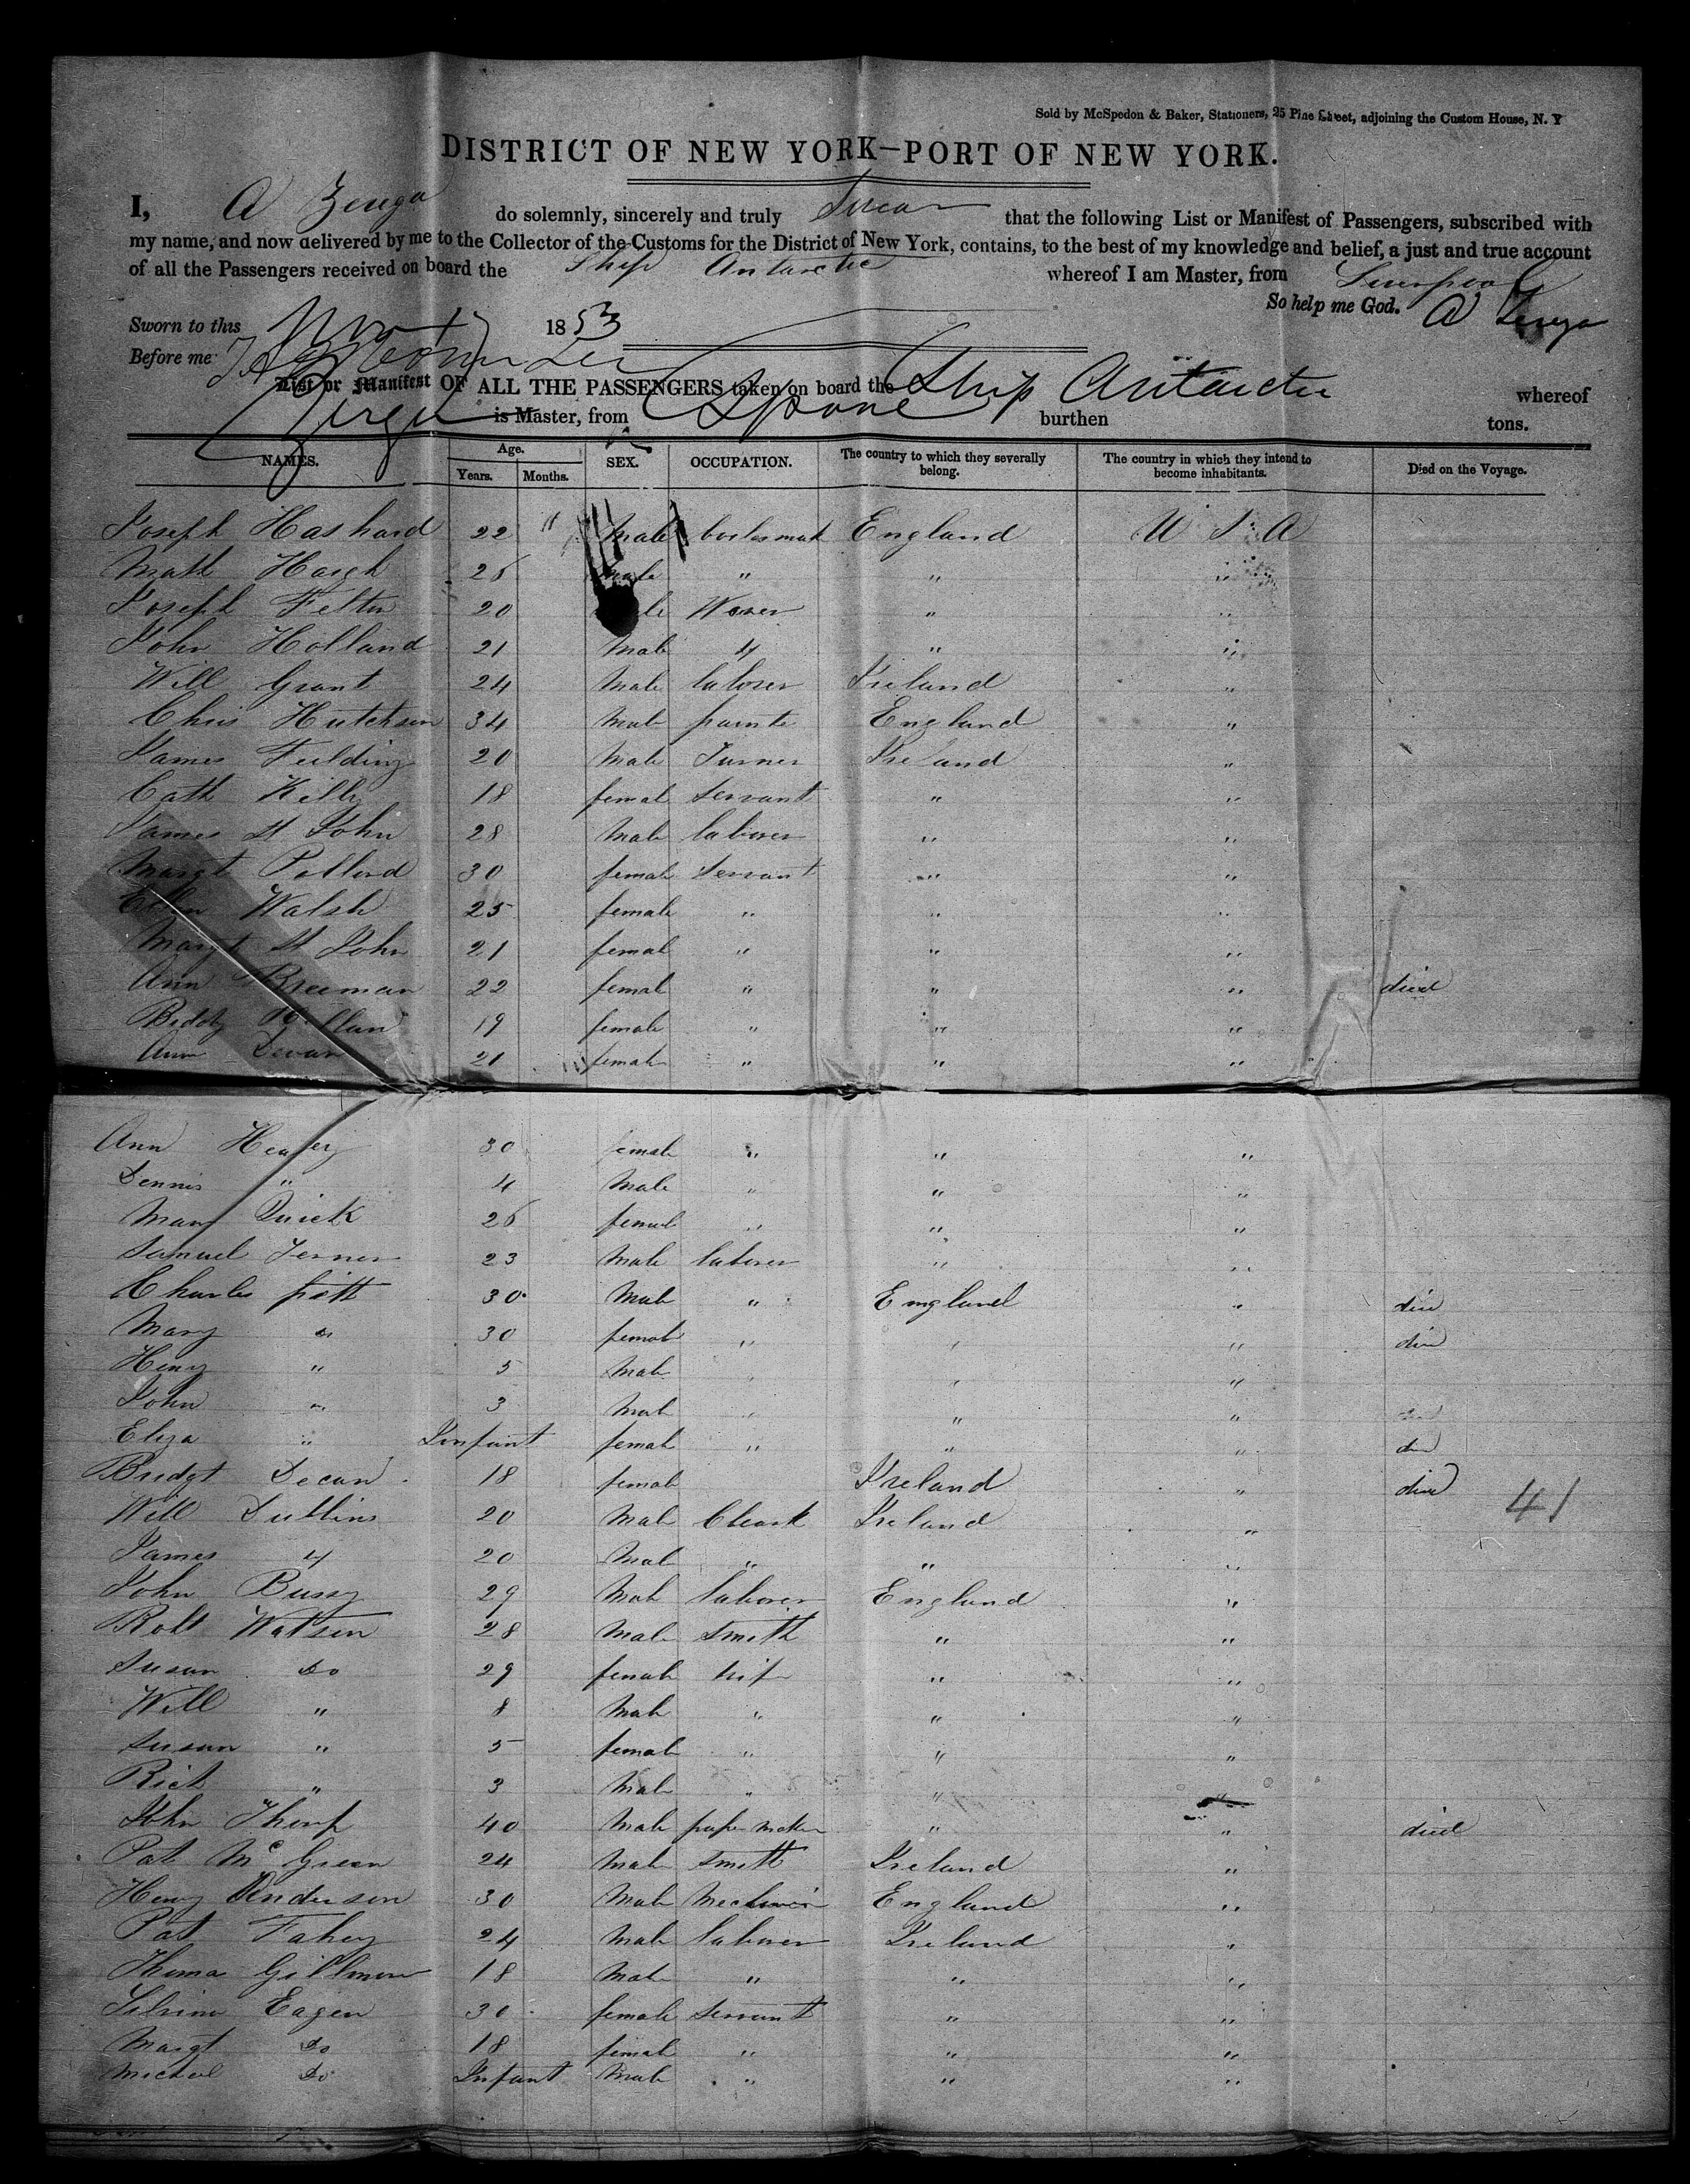 Sold by McSpedon & Baker, Stationers, 25 Pine Street, adjoining the Custom House, N. Y
DISTRICT OF NEW YORK—PORT OF NEW YORK.
I, A Zerega do solemnly, sincerely and truly Swear that the following List or Manifest of Passengers, subscribed with
my name, and now delivered by me to the Collector of the Customs for the District of New York, contains, to the best of my knowledge and belief, a just and true account
of all the Passengers received on board the Ship Antarctic whereof I am Master, from Liverpool
So help me God. A Zerega
Sworn to this Nov 1853
Before me
List or Manifest OF ALL THE PASSENGERS taken on board the Ship Antarctic whereof
Zerega is Master, from burthen tons.
NAMES. Age. Years. Months. SEX. OCCUPATION. The country to which they severally belong. The country in which they intend to become inhabitants. Died on the Voyage.
Joseph Hashard 22 " Male England U S A
Matt Haigh 26 Male " " "
Joseph Felton 20 Male Wever " "
John Holland 21 Male " " "
Will Grant 24 Male laborer Ireland "
Chris Hutchson 34 Male painte England "
James Feilding 20 Male Turner Ireland "
Cath Killy 18 femal Servant " "
James St John 28 Male laborer " "
Margt Pollard 30 female Servant " "
Ellen Walsh 25 female " " "
Margt St John 21 femal " " "
Ann Breeman 22 femal " " " died
Biddy 19 female " " "
Ann Devan 21 female " " "
Ann Healey 30 female " " "
Dennis " 4 Male " " "
Mary Quick 26 femal " " "
Samuel Ferner 23 Male laborer " "
Charles pitt 30 Male " England " died
Mary Do 30 female " " " died
Henry " 5 Male " " "
John " 3 Male " " " died
Eliza " Innfant female " " " died
Bridgt Decan 18 female Ireland " died
41
Will Dullins 20 Male Cleark Ireland "
James " 20 Male " " "
John Bussy 29 Male laborer England "
Robt Watson 28 Male Smith " "
Susan Do 29 female wife " "
Will " 8 Male " " "
Susan " 5 female " " "
Rich " 3 Male " " "
John Thorp 40 Male paper maker " " died
Pat Mc Green 24 Male Smith Ireland "
Henry Anderson 30 Male Mechanic England "
Pat Fahey 24 Male laborer Ireland "
Thoma Gillmore 18 Male " " "
Eagen 30 female Servant " "
Margt Do 18 female " " "
Michael Do Infant Male " " "